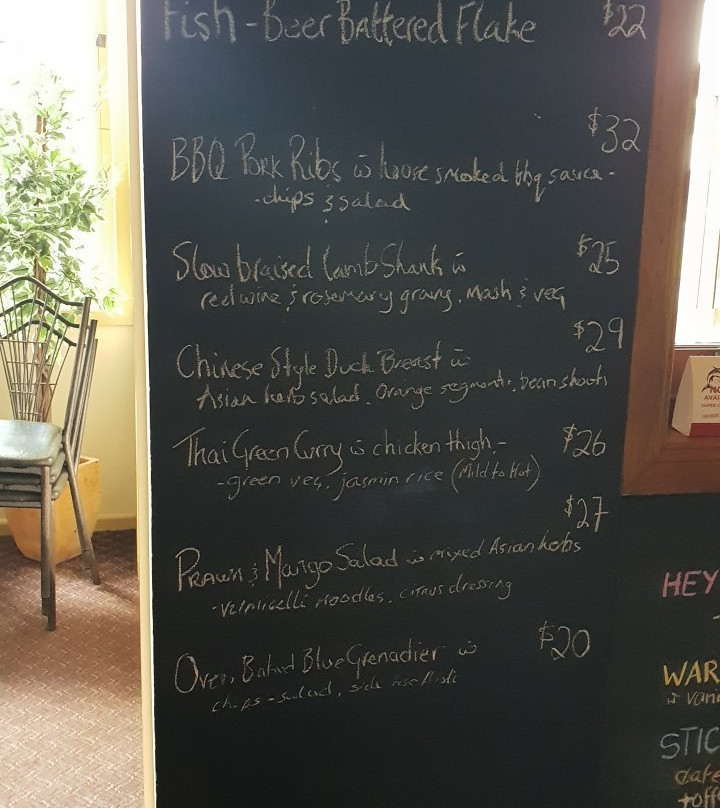 Fish - Beer Battered Flake $22
$32
BBQ Pork Ribs w house smoked bbq sauce -
- chips & salad
Slow braised Lamb Shank w $25
red wine & rosemary gravy. Mash & veg
$29
Chinese Style Duck Breast w
Asian herb salad. Orange segments, bean shoots
Thai Green Curry w chicken thigh - $26
- green veg. jasmin rice (Mild to Hot)
$27
Prawn & Mango Salad w mixed Asian herbs
- vermicelli noodles. citrus dressing
Oven Baked Blue Grenadier w $20
chips - salad,
HEY
WAR
w vani
STIC
date
toff
NO
AVAI